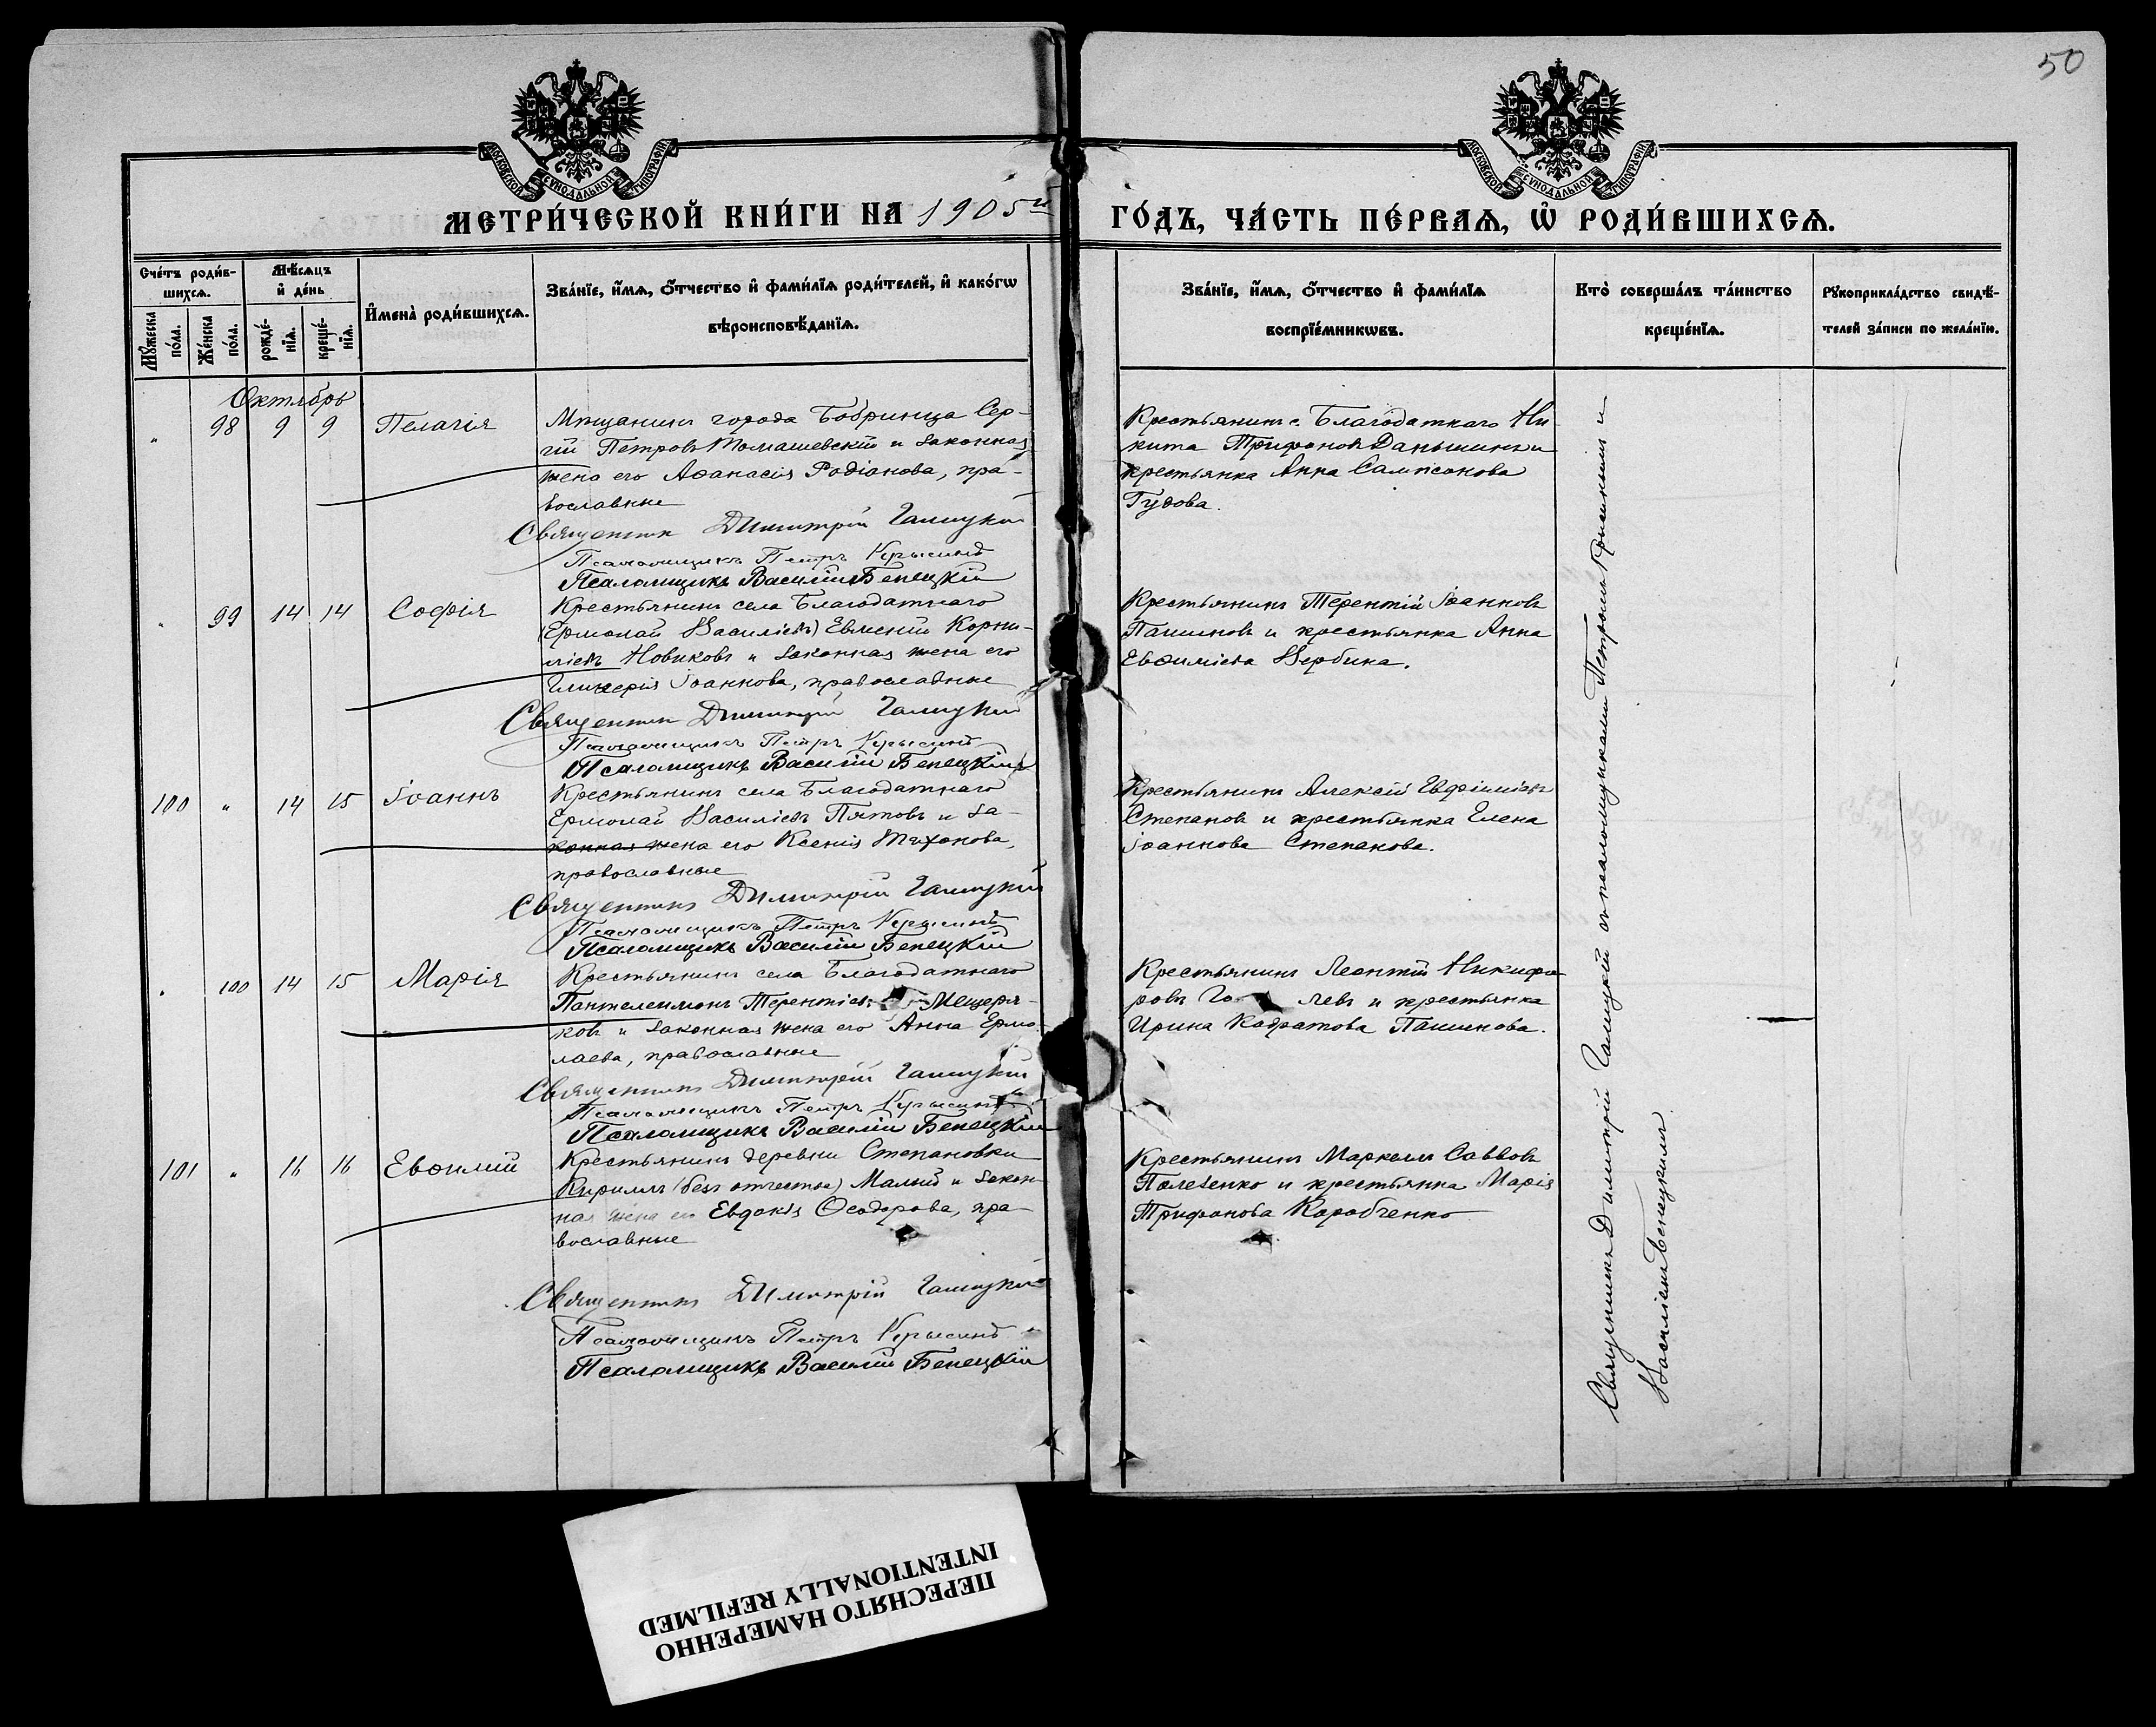 50
МОСКОВСКОЙ СѴНОДАЛЬНОЙ ТИПОГРАФІИ
МОСКОВСКОЙ СѴНОДАЛЬНОЙ ТИПОГРАФІИ
МЕТРИ́ЧЕСКОЙ КНИ́ГИ НА 1905й
ГО́ДЪ, ЧА́СТЬ ПЕ́РВАѦ, Ѽ РОДИ́ВШИХСѦ.
Сче́тъ роди́в-
шихсѧ.
Мꙋ́жеска по́ла.
Же́нска по́ла.
Мѣ́сѧцъ
и҆ де́нь
рожде́-
нїѧ.
креще́-
нїѧ.
И҆мена̀ роди́вшихсѧ.
Зва́нїе, и҆́мѧ, ѻ҆́тчество и҆ фами́лїѧ роди́телей, и҆ како́гѡ
вѣроисповѣ́данїѧ.
Зва́нїе, и҆́мѧ, ѻ҆́тчество и҆ фами́лїѧ
воспрїе́мникѡвъ.
Кто̀ соверша́лъ та́инство
креще́нїѧ.
Рꙋкоприкла́дство свидѣ́-
телей за́писи по жела́нїю.
Октябрь
" 98 9 9 Пелагія
Мѣщанинъ города Бобринца Сер-
гій Петровъ Томашевскій и законная
жена его Аѳанасія Родіонова, пра-
вославные
Священникъ Димитрій Галицкій
Псаломщикъ Петръ Крысинъ
Псаломщикъ Василій Бенецкій
Крестьянинъ с. Благодатнаго Ни-
кита Трифоновъ Даньшинъ и
крестьянка Анна Сампсонова
Гудова.
" 99 14 14 Софія
Крестьянинъ села Благодатнаго
(Ермолай Василіевъ) Евменій Корни-
ліевъ Новиковъ и законная жена его
Гликерія Іоаннова, православные
Священникъ Димитрій Галицкій
Псаломщикъ Петръ Крысинъ
Псаломщикъ Василій Бенецкій
Крестьянинъ Терентій Іоанновъ
Пашиновъ и крестьянка Анна
Евѳиміева Вербина.
100 " 14 15 Іоаннъ
Крестьянинъ села Благодатнаго
Ермолай Василіевъ Пятовъ и за-
конная жена его Ксенія Тихонова,
православные
Священникъ Димитрій Галицкій
Псаломщикъ Петръ Крысинъ
Псаломщикъ Василій Бенецкій
Крестьянинъ Алексій Евфиміевъ
Степановъ и крестьянка Елена
Іоаннова Степанова.
" 100 14 15 Марія
Крестьянинъ села Благодатнаго
Пантелеимонъ Терентіевъ Мещеря-
ковъ и законная жена его Анна Ермо-
лаева, православные
Священникъ Димитрій Галицкій
Псаломщикъ Петръ Крысинъ
Псаломщикъ Василій Бенецкій
Крестьянинъ Леонтій Никифо-
ровъ и крестьянка
Ирина Кодратова Пашинова.
101 " 16 16 Евѳимій
Крестьянинъ деревни Степановки
Кириллъ (безъ отчества) Малый и закон-
ная жена его Евдокія Ѳеодорова, пра-
вославные
Священникъ Димитрій Галицкій
Псаломщикъ Петръ Крысинъ
Псаломщикъ Василій Бенецкій
Крестьянинъ Маркеллъ Саввовъ
Полезенко и крестьянка Марія
Трифонова Коробченко
Священникъ Димитрій Галицкій съ псаломщиками Петромъ Крысинымъ и
Василіемъ Бенецкимъ.
ПЕРЕСНЯТО НАМЕРЕННО
INTENTIONALLY REFILMED